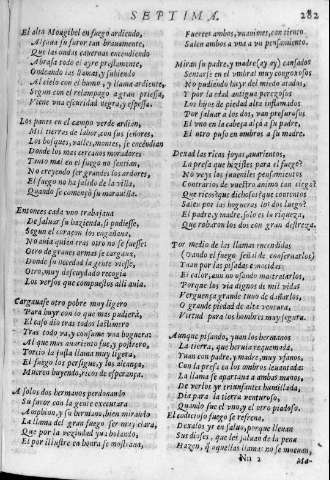 SEPTIMA.
282
El alto Mougibel en fuego ardiendo,
Alçaua su furor tan brauamente,
Que las ondas cauernas encendiendo
Abrasa todo el ayre presamente,
Ondeando las llamas, y subiendo
Al cielo con el humo, y llama ardiente,
Segun con el relampago agran priessa
Viene vna escuridad negra, y espessa.
Los panes en el campo verde ardian,
Mil tierras de labor, con sus señores,
Los bosques, valles, montes, se encẽdian
Donde los mas cercanos moradores
Tanto mal en el fuego no sentian,
No creyendo ser grandes los ardores,
El fuego no ha salido de la villa,
Quando se començò su marauilla.
Entonces cada vno trabajaua
De saluar su hazienda, si pudiesse,
Segun el coraçon los engañaua,
No auia quien tras otro no se fuesse:
Otro de graues armas se cargaua,
Donde su bondad la gente viesse,
Otro, muy descuydado recogia
Los versos que compuesto alli auia.
Cargauase otro pobre muy ligero
Para huyr con lo que mas pudiera,
El caso dio tras todos lastimero
Tras todo va, y consume vna hoguera:
Al que mas auariento fue, y postrero,
Torcio la justa llama muy ligera,
El fuego los persigue, y los alcança,
Muerto huyendo, ricos de esperança.
A solos dos hermanos perdonando
Su furor con la gente executara
Amphion, y su hermano, bien mirando
La llama del gran fuego ser muy clara,
Que por la vezindad yua bolando,
El por illustre en honra se mostrano,
Fuertes ambos, vnanimes, con tiento
Salen ambos a vna a vn pensamiento.
Miran su padre, y madre (ay ay) cansados
Sentarse en el vmbral muy congoxosos
No pudiendo huyr del miedo atados,
Y por la edad antigua perezosos
Los hijos de piedad alta inflamados
Por saluar a los dos, van presurosos
El vno en la cabeça alçò a su padre,
El otro puso en ombros a su madre.
Dexad las ricas joyas, auarientos,
La presa que huzistes para el fuego?
No veys los juueniles pensamientos
Contrarios de vuestro animo tan ciego?
Que ricos? que dichosos? que contentos
Salen por las hogueras los dos luego?
El padre, y madre, solo es la riqueza,
Que robaron los dos con gran destreza.
Por medio de las llamas encendidas
(Dando el fuego señal de conseruarlos)
Yuan por las pisadas conocidas,
El calor, aun no osando maltratarlos,
Porque los via dignos de mil vidas
Verguença grande tuuo de dañarlos,
O grande piedad de alta ventura,
Virtud para los hombres muy segura.
Aunque pisando, yuan los hermanos
La tierra, que heruia requemada,
Yuan con padre, y madre, muy vfanos,
Con la presa en los ombros leuantada
La llama se apartaua a ambas manos,
De verlos yr triumfantes humillada,
Dia para la tierra venturoso,
Quando fue el vno, y el otro piadoso.
El codicioso fuego se refrena,
Dexalos yr en saluo, porque lleuan
Sus dioses, que les saluan de la pena
Hazen, q̃ aquellas llamas no se mueuan,
Nn 2
Ma-